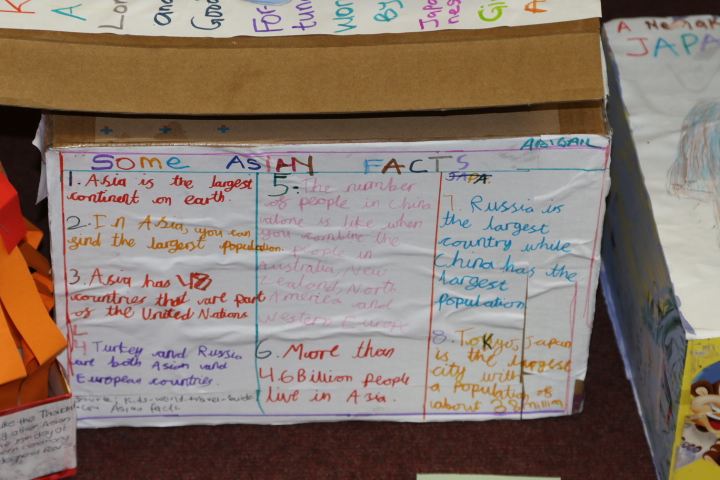 Lon
and
Good
For
tun
Wor
By
Japa
nes
Gi
A
JAPA
ABIGAIL
SOME ASIAN FACTS
1. Asia is the largest
continent on earth.
2. In Asia, you can
find the largest population
3. Asia has 48
countries that are part
of the United Nations
4 Turkey and Russia
are both Asian and
European countries.
Asian facts.
5. The number
of people in China
alone is like when
you combine the
people in
Australia, New
Zealand, North
America and
Western Europe
6. More than
4.6 Billion people
live in Asia.
JAPA
7. Russia is
the largest
country while
China has the
largest
population
8. Tokyo, Japan
is the largest
city with
a population of
about 38 million